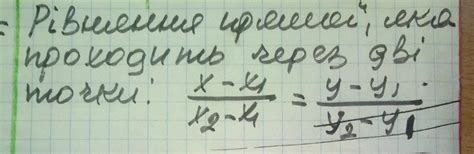 Рівняння прямої, яка
проходить через дві
точки: (x - x₁)/(x₂ - x₁) = (y - y₁)/(y₂ - y₁)